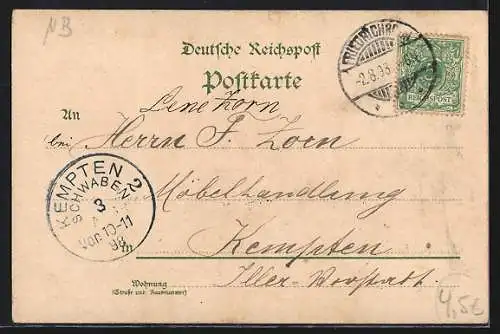 NB
Deutsche Reichspost
Postkarte
FRIEDRICHRODA
-2.8.98
REICHSPOST
Lene Zorn
An
bei Herrn F. Zorn
KEMPTEN 2
SCHWABEN
3
Vor. 10-11
98
Möbelhandlung
in Kempten
Wohnung
(Straße und Hausnummer)
Iller-Vorstadt
4,50